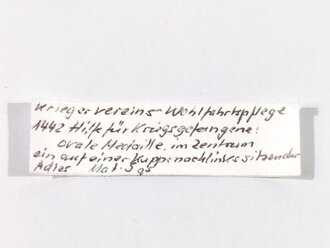 Kriegervereins-Wohlfahrtspflege
1442 Hilfe für Kriegsgefangene:
ovale Medaille, im Zentrum
ein auf einer Kuppe nach links sitzender
Adler Mat.